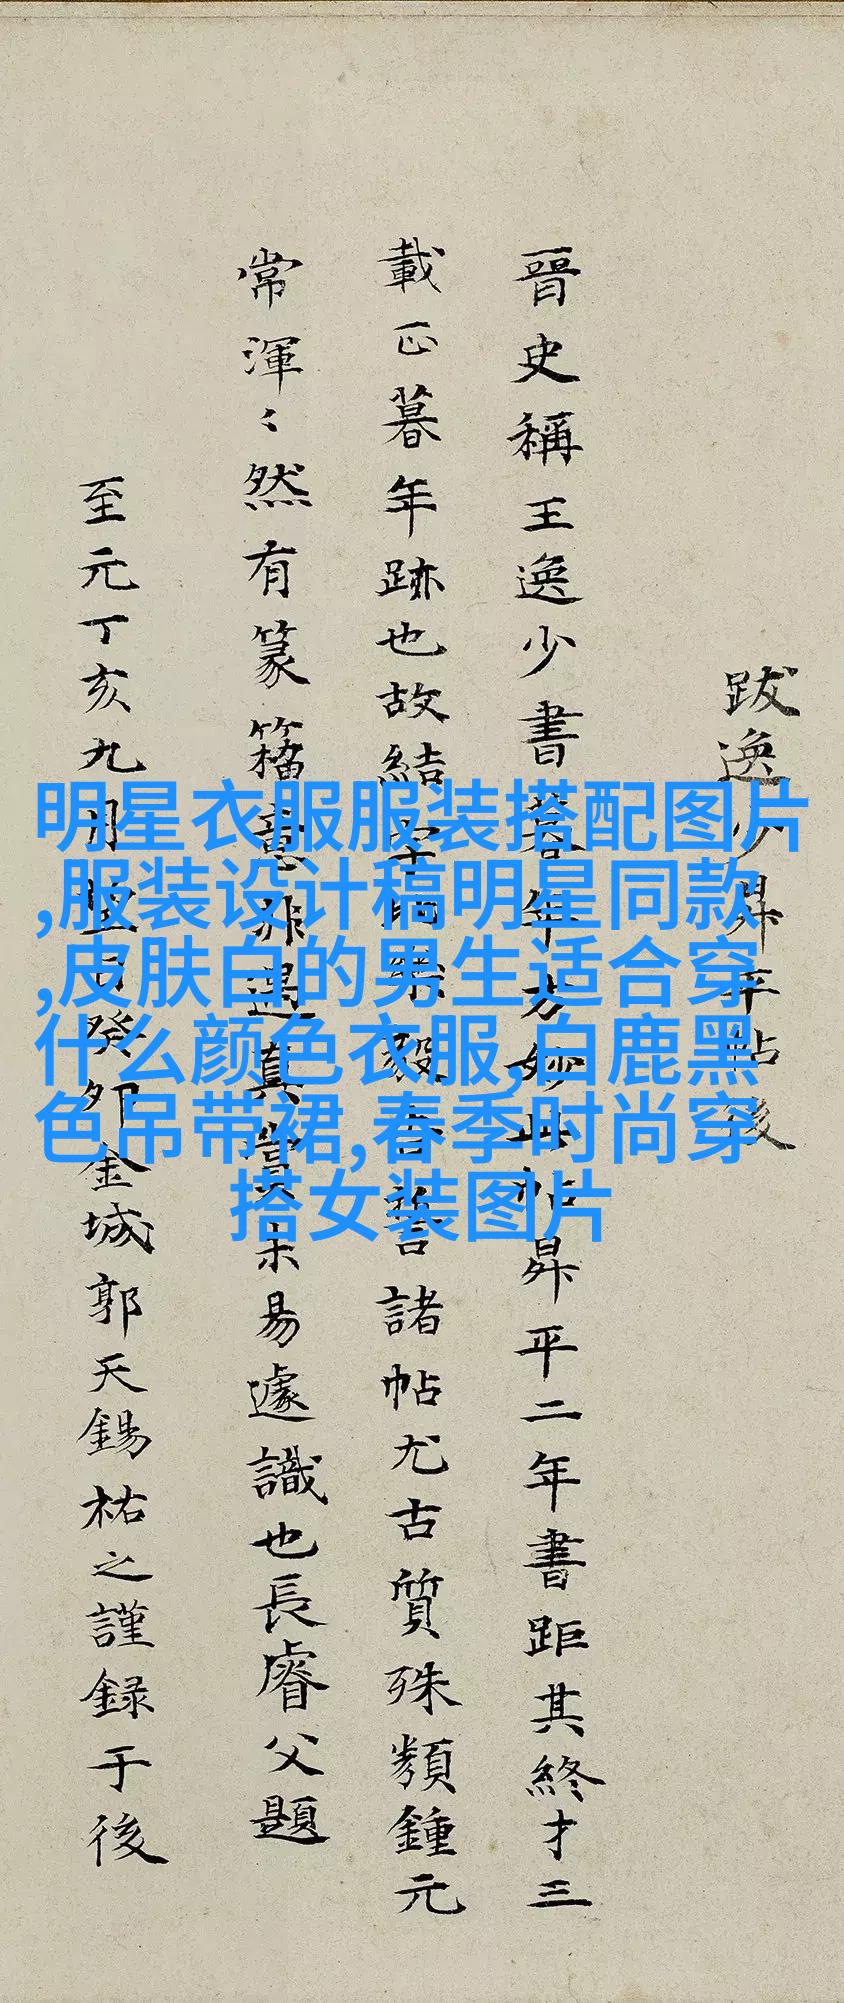 跋逸少昇平帖後
晉史稱王逸少書暮年方妙此帖昇平二年書距其終才三
載正暮年跡也故結字樂毅告誓諸帖尤古質殊類鍾元
常渾〻然有篆籀意非遇真賞未易遽識也長睿父題
至元丁亥九月望日癸卯金城郭天錫祐之謹録于後
明星衣服服装搭配图片
,服装设计稿明星同款
,皮肤白的男生适合穿
什么颜色衣服,白鹿黑
色吊带裙,春季时尚穿
搭女装图片